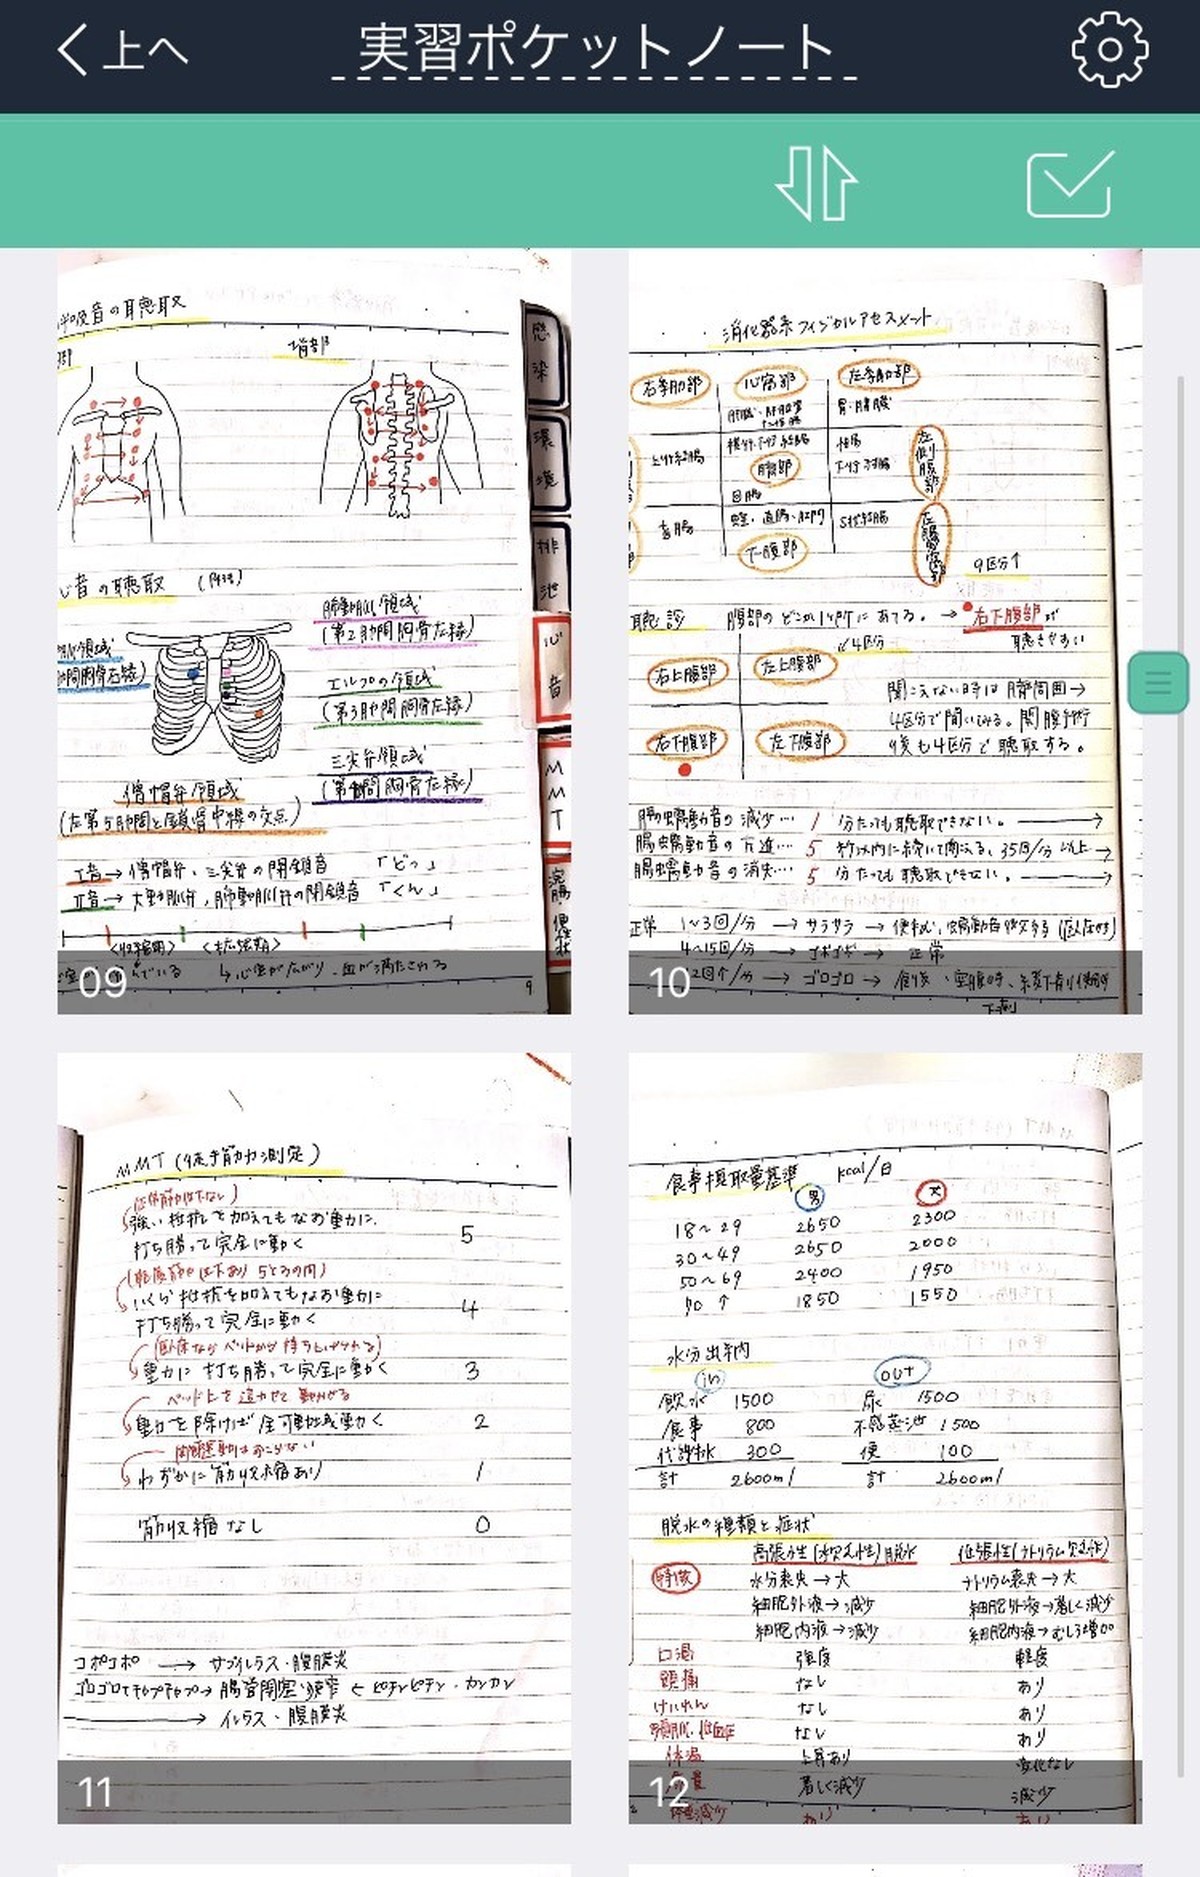 上へ
実習ポケットノート
呼吸音の聴取
背部
心音の聴取
肺動脈領域
(第2肋間胸骨左縁)
エルブの領域
(第3肋間胸骨左縁)
三尖弁領域
僧帽弁領域
(左第5肋間と鎖骨中線の交点)
I音→僧帽弁、三尖弁の閉鎖音 「どっ」
II音→大動脈弁、肺動脈弁の閉鎖音 「くん」
<収縮期> <拡張期>
↳心室が広がり、血が満たされる
9
09
感染
環境
排泄
心音
MMT
浣腸・便性状
消化器系フィジカルアセスメント
右季肋部 心窩部 左季肋部
胃・脾臓
上行結腸 横行・下行結腸
臍部 下行結腸
左側腹部
回腸
盲腸 直腸・肛門 S状結腸
下腹部
9区分↑
聴診 腹部のどこか1ヶ所にあてる。→右下腹部が
聴きやすい
↙4区分
右上腹部 左上腹部
右下腹部 左下腹部
聞こえない時は臍周囲→
4区分で聞いてみる。開腹手術
後も4区分で聴取する。
腸の蠕動音の減少… 1 分たっても聴取できない。
腸蠕動音の亢進… 5 秒以内に続いて聞こえる、35回/分以上→
腸蠕動音の消失… 5 分たっても聴取できない。
正常 1~3回/分 →サラサラ→
4~15回/分 →ゴボゴボ→ 正常
2回↑/分 →ゴロゴロ→ 食後、空腹時、緩下剤使用時
下剤
10
MMT(徒手筋力測定)
強い抵抗を加えてもなお重力に
打ち勝って完全に動く 5
(軽度筋力低下あり 5と3の間)
いくらか抵抗を加えてもなお重力に
打ち勝って完全に動く 4
重力に打ち勝って完全に動く 3
重力を除けば全可動域動く 2
わずかに筋収縮あり 1
筋収縮なし 0
コポコポ →サブイレウス・腹膜炎
→イレウス・腹膜炎
11
食事摂取量基準 kcal/日
男 女
18~29 2650 2300
30~49 2650 2000
50~69 2400 1950
70↑ 1850 1550
水分出納
in out
飲水 1500 尿 1500
食事 800 不感蒸泄 1500
代謝水 300 便 100
計 2600ml 計 2600ml
脱水の種類と症状
高張性(水欠乏性)脱水 低張性(ナトリウム欠乏性)
特徴 水分喪失→大 ナトリウム喪失→大
細胞外液→減少 細胞外液→著しく減少
細胞内液→減少 細胞内液→むしろ増加
口渇 強度 軽度
頭痛 なし あり
けいれん なし あり
なし あり
体温 上昇あり 変化なし
尿量 著しく減少 減少
あり あり
12